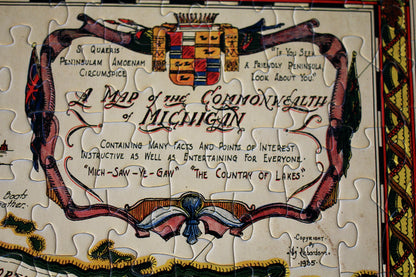 Si Quaeris
Peninsulam Amoenam
Circumspice
"If You Seek
a Friendly Peninsula
Look About You."
A Map of the Commonwealth
of Michigan
Containing Many Facts and Points of Interest
Instructive as Well as Entertaining for Everyone.
"Mich-Saw-Ye-Gaw" "The Country of Lakes"
Boats
Copyright